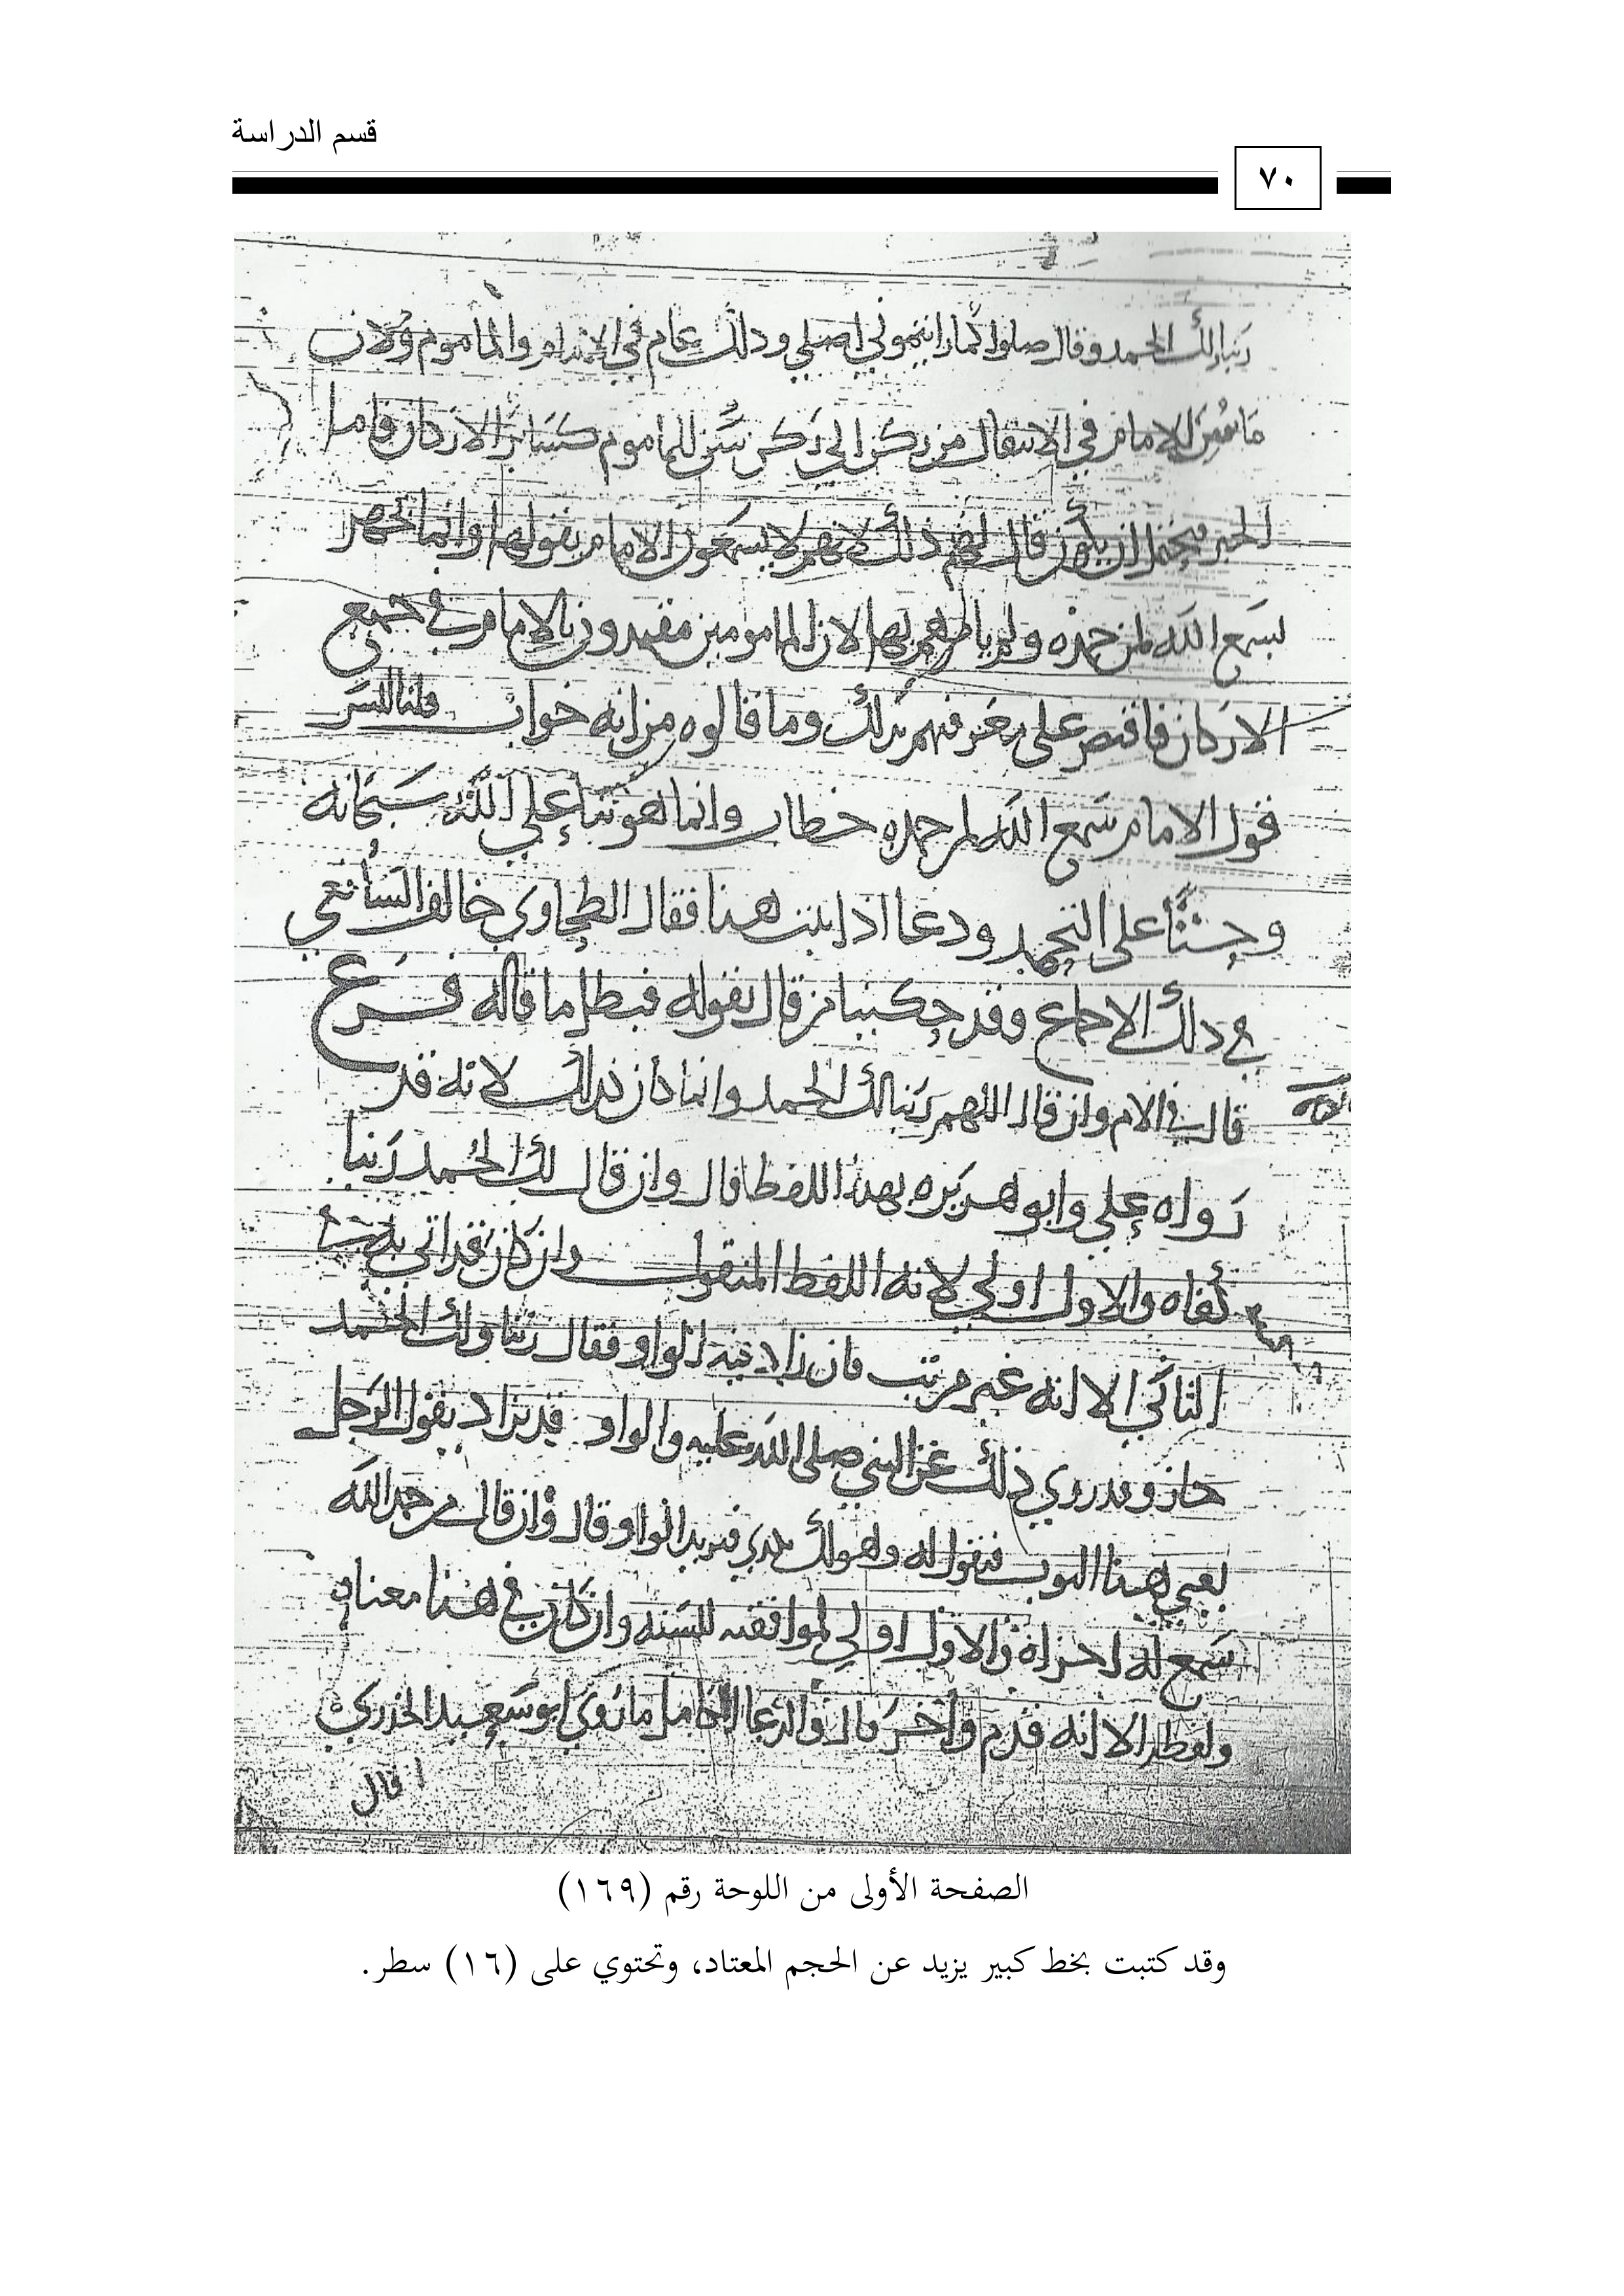 قسم الدراسة
٧٠
ربنا لك الحمد وقال صلوا كما رايتموني اصلي وذلك عام في الامام والماموم ولان
ما سن للامام في الانتقال من ركن الى ركن سن للماموم كسائر الاركان فاما
الخبر فيحتمل ان يكون قال لهم ذلك لانهم لا يسمعون الامام يقولها وانما الجهر
بسمع الله لمن حمده ولم يامرهم بها لان المامومين مقتدون بالامام في جميع
الاركان فاقتصر على بذلك وما قالوه من انه جواب قلنا ليس
قول الامام سمع الله لمن حمده خطاب وانما هو ثنا على الله سبحانه
وحث على التحميد ودعا اذا ثبت هذا فقال الطحاوي خالف الشافعي
في ذلك الاجماع وقد حكينا من قال بقوله فبطل ما قاله فرع
قال في الام وان قال اللهم ربنا لك الحمد وانما كان كذلك لانه قد
رواه علي وابو هريره بهذا اللفظ قال وان قال لك الحمد ربنا
كفاه والاول اولى لانه اللفظ المنقول وان كان قد اتى
الثاني الا انه غير مرتب فان زاد فيه الواو فقال ربنا ولك الحمد
جاز وقد روي ذلك عن النبي صلى الله عليه والواو قد تزاد يقول الرجل
بعني هذا الثوب فيقول له وهو لك فيزيد الواو وقال وان قال من حمد الله
سمع له اجزاه والاول اولى لموافقته للسنه وان كان في هذا معناه
ولفظه الا انه قدم واخر قال والدعا الكامل ما روي ابو سعيد الخدري
قال
الصفحة الأولى من اللوحة رقم (١٦٩)
وقد كتبت بخط كبير يزيد عن الحجم المعتاد، وتحتوي على (١٦) سطر.